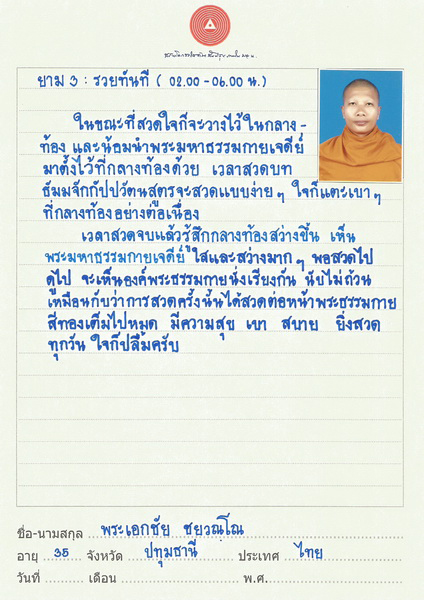 ยาม 3 : รวยทันที ( 02.00 - 06.00 น.)
ในขณะที่สวดใจก็จะวางไว้ในกลาง-
ท้อง และน้อมนำพระมหาธรรมกายเจดีย์
มาตั้งไว้ที่กลางท้องด้วย เวลาสวดบท
ธัมมจักกัปปวัตนสูตรจะสวดแบบง่ายๆ ใจก็แตะเบาๆ
ที่กลางท้องอย่างต่อเนื่อง
เวลาสวดจบแล้วรู้สึกกลางท้องสว่างขึ้น เห็น
พระมหาธรรมกายเจดีย์ ใสและสว่างมากๆ พอสวดไป
ดูไป จะเห็นองค์พระธรรมกายนั่งเรียงกัน นับไม่ถ้วน
เหมือนกับว่าการสวดครั้งนั้นได้สวดต่อหน้าพระธรรมกาย
สีทองเต็มไปหมด มีความสุข เบา สบาย ยิ่งสวด
ทุกวัน ใจก็ปลื้มครับ
ชื่อ-นามสกุล พระเอกชัย ชยวณฺโณ
อายุ 35 จังหวัด ปทุมธานี ประเทศ ไทย
วันที่ เดือน พ.ศ.